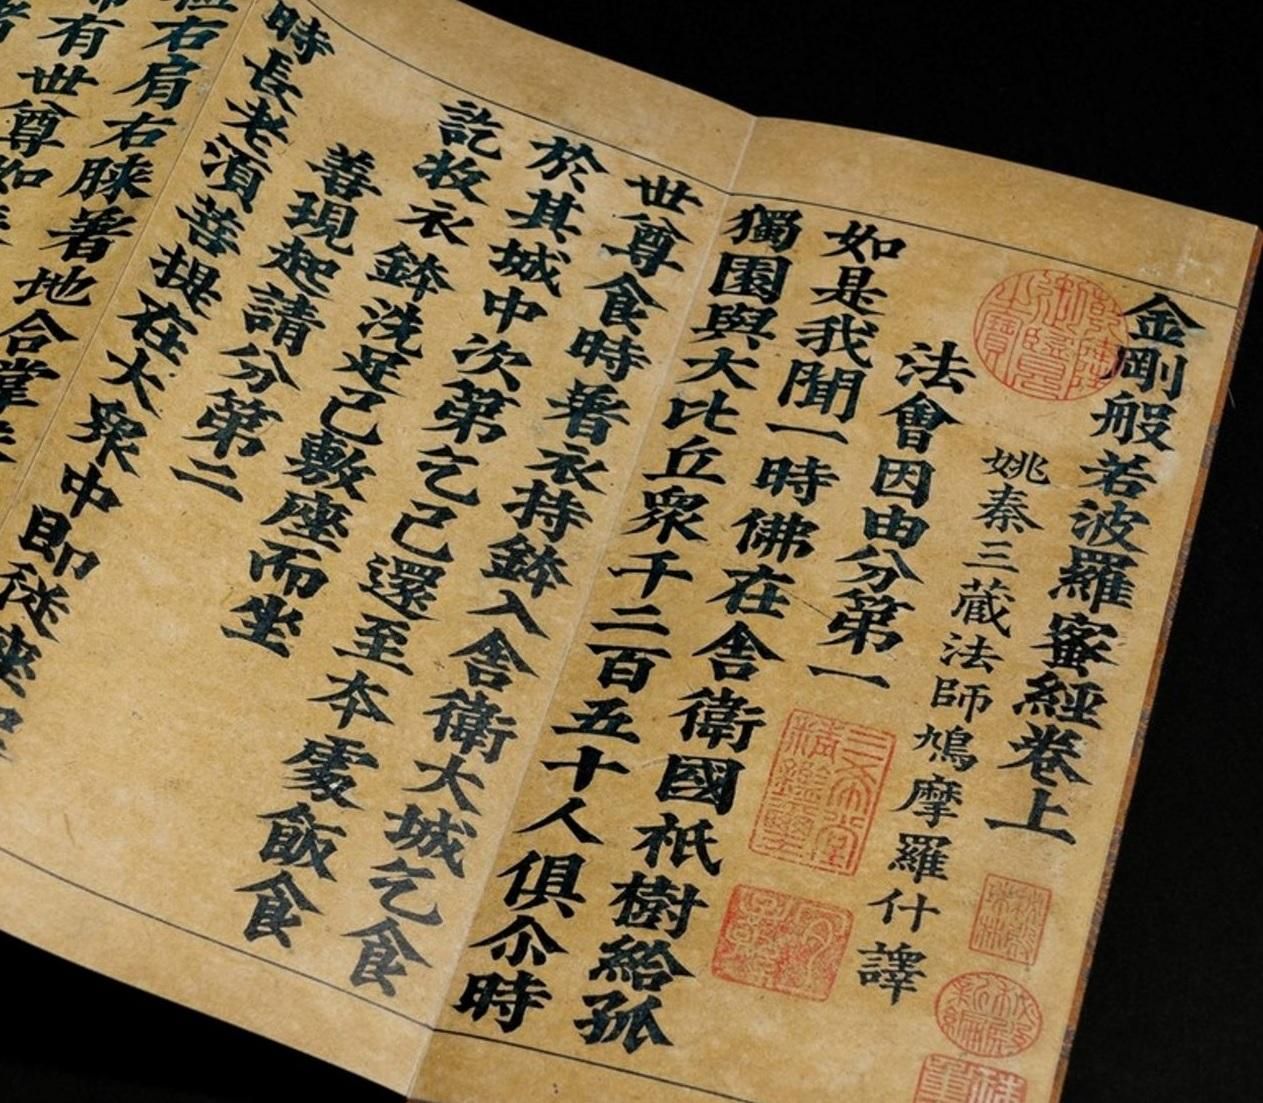 金剛般若波羅蜜經卷上
姚秦三藏法師鳩摩羅什譯
法會因由分第一
如是我聞一時佛在舍衛國祇樹給孤
獨園與大比丘眾千二百五十人俱尒時
世尊食時著衣持鉢入舍衛大城乞食
於其城中次第乞已還至本處飯食
訖收衣鉢洗足已敷座而坐
善現起請分第二
時長老須菩提在大眾中即從座
右肩右膝著地合掌
有世尊如